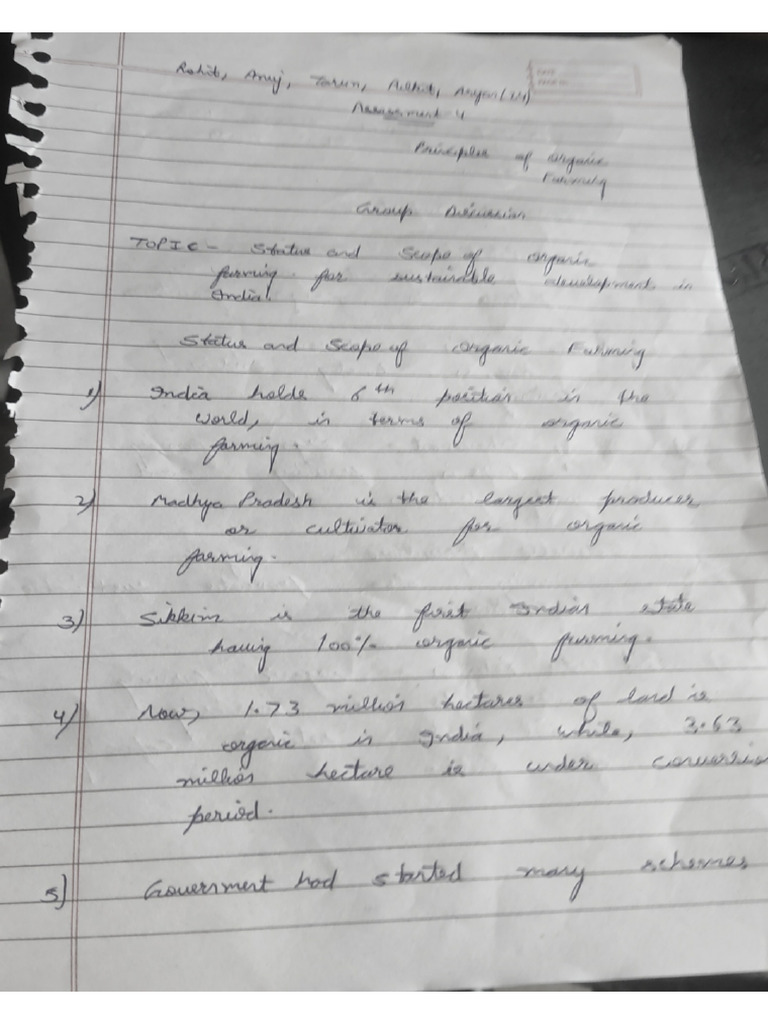 Rohit, Anuj, Tarun, Aryan (24)
Assessment 4
Principles of organic
Farming
Group Discussion
TOPIC - Status and Scope of organic
farming for sustainable development in
India.
Status and Scope of organic Farming
1) India holds 6th position in the
world, in terms of organic
farming.
2) Madhya Pradesh is the largest producer
or cultivator for organic
farming.
3) Sikkim is the first Indian state
having 100% organic farming.
4) Now, 1.73 million hectares of land is
organic in India, while, 3.63
million hectare is under conversion
period.
5) Government had started many schemes